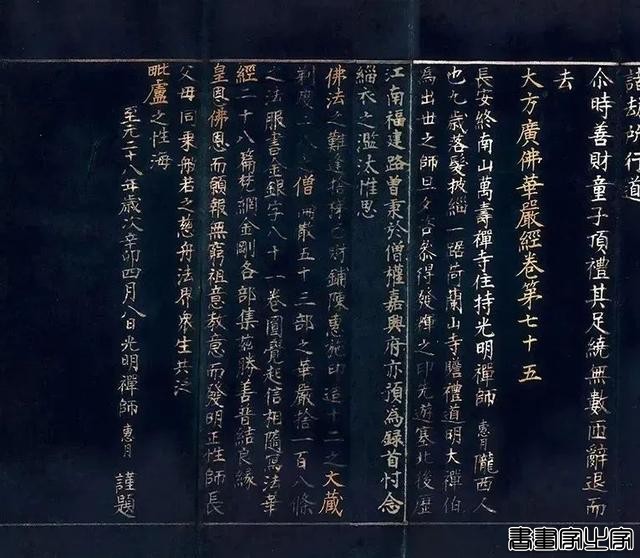 諸劫所行道
尒時善財童子頂禮其足繞無數匝辭退而
去
大方廣佛華嚴經卷第七十五
長安終南山萬壽禪寺住持光明禪師惠月隴西人
也九歲落髮披緇一路荷蘭山寺瞻禮道明大禪伯
為出世之師旦夕咨叅得發揮之印先遊塞北後歷
江南福建路曽秉於僧權嘉興府亦預為錄首忖念
緇衣之濫汰惟思
佛法之難逢捨梯己財鋪陳惠施印造十二之大藏
剃度二八之僧散五十三部之華嚴拾一百八條
之法服書金銀字八十一卷圓覺起信相隨寫法華
經二十八篇梵網金剛各部集兹勝善普結良緣
皇恩佛恩而願報無窮祖意教意而發明正性師長
父母同乘般若之慈舟法界衆生共泛
毗盧之性海
至元二十八年歲次辛卯四月八日光明禪師惠月謹題